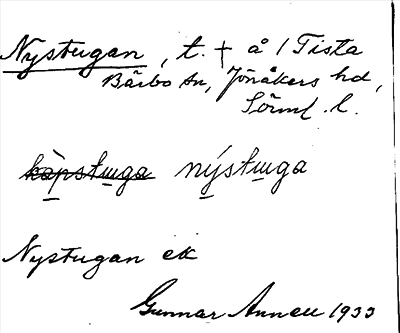 Nystugan, t. + å 1 Tista
Bärbo sn, Jönåkers hd,
Sörml. l.
kòpstɯga nýstɯga
Nystugan ek
Gunnar Annell 1933